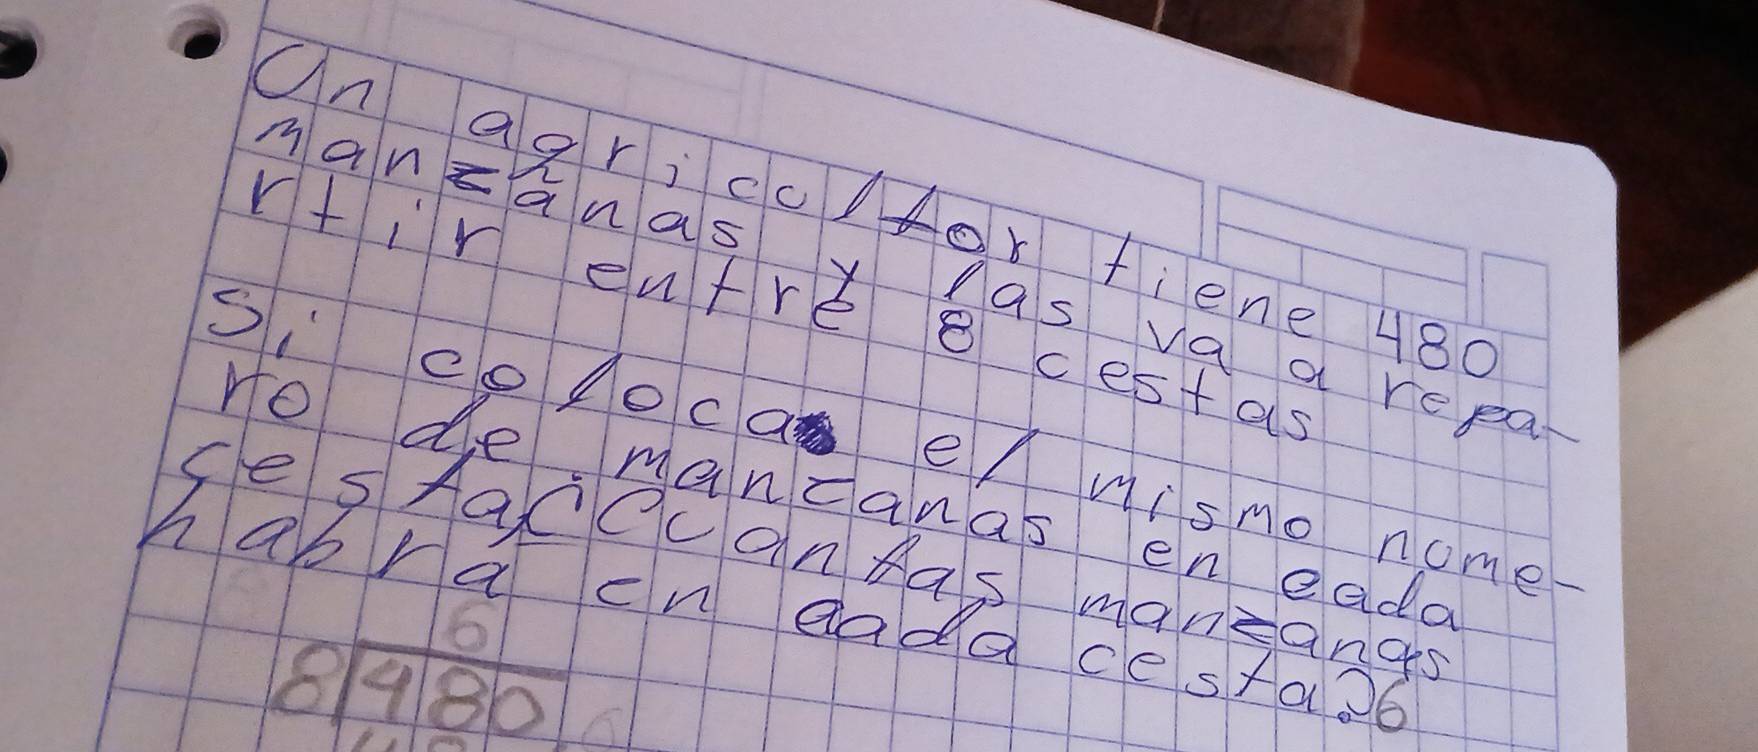 Un agricultor tiene 480
manzanas y las va a repa-
rtir entre 8 cestas
Si coloca el mismo nume-
ro de manzanas en cada
cesta ¿Cuantas manzanas
habra en cada cesta? 6
6
8 480